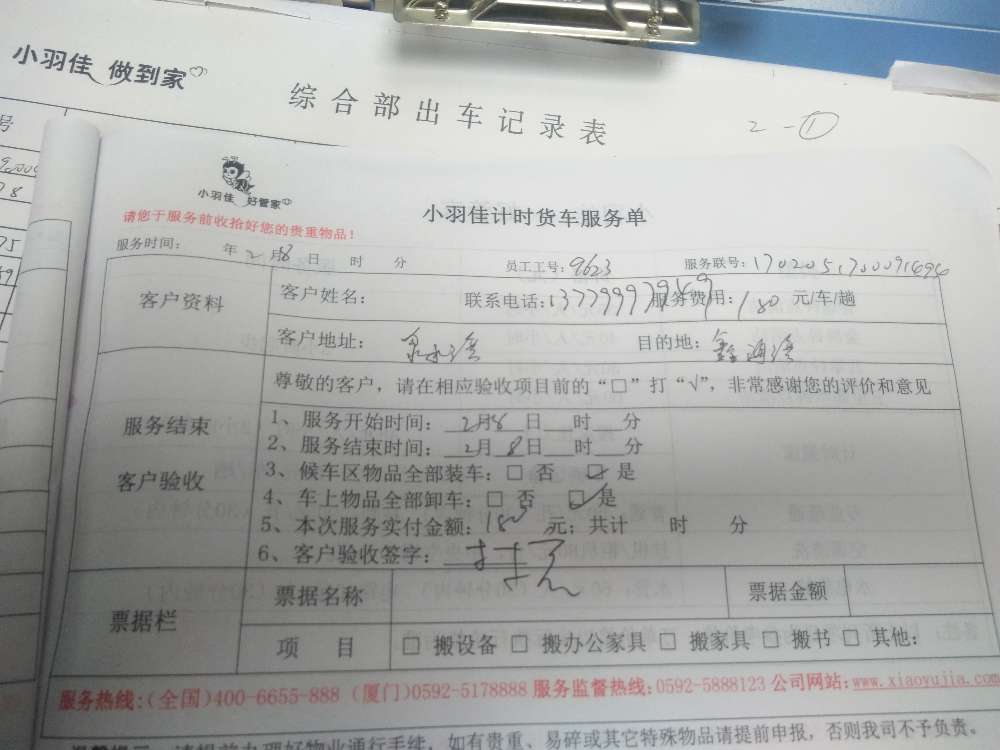 小羽佳 做到家
综合部出车记录表
2-①
号
小羽佳 好管家
小羽佳计时货车服务单
请您于服务前收拾好您的贵重物品!
服务时间: 年 2 月 8 日 时 分 员工工号: 9623 服务联号:
客户资料 客户姓名: 联系电话: 服务费用: 180 元/车/趟
客户地址: 目的地:
尊敬的客户，请在相应验收项目前的“□”打“√”，非常感谢您的评价和意见
服务结束
客户验收
1、服务开始时间: 2月8日 时 分
2、服务结束时间: 2月8日 时 分
3、候车区物品全部装车: □ 否 ☑ 是
4、车上物品全部卸车: □ 否 ☑ 是
5、本次服务实付金额: 180 元; 共计 时 分
6、客户验收签字:
票据栏 票据名称 票据金额
项 目 □ 搬设备 □ 搬办公家具 □ 搬家具 □ 搬书 □ 其他:
服务热线:(全国)400-6655-888 (厦门)0592-5178888 服务监督热线:0592-5888123 公司网站:www.xiaoyujia.com
请提前办理好物业通行手续，如有贵重、易碎或其它特殊物品请提前申报，否则我司不予负责。